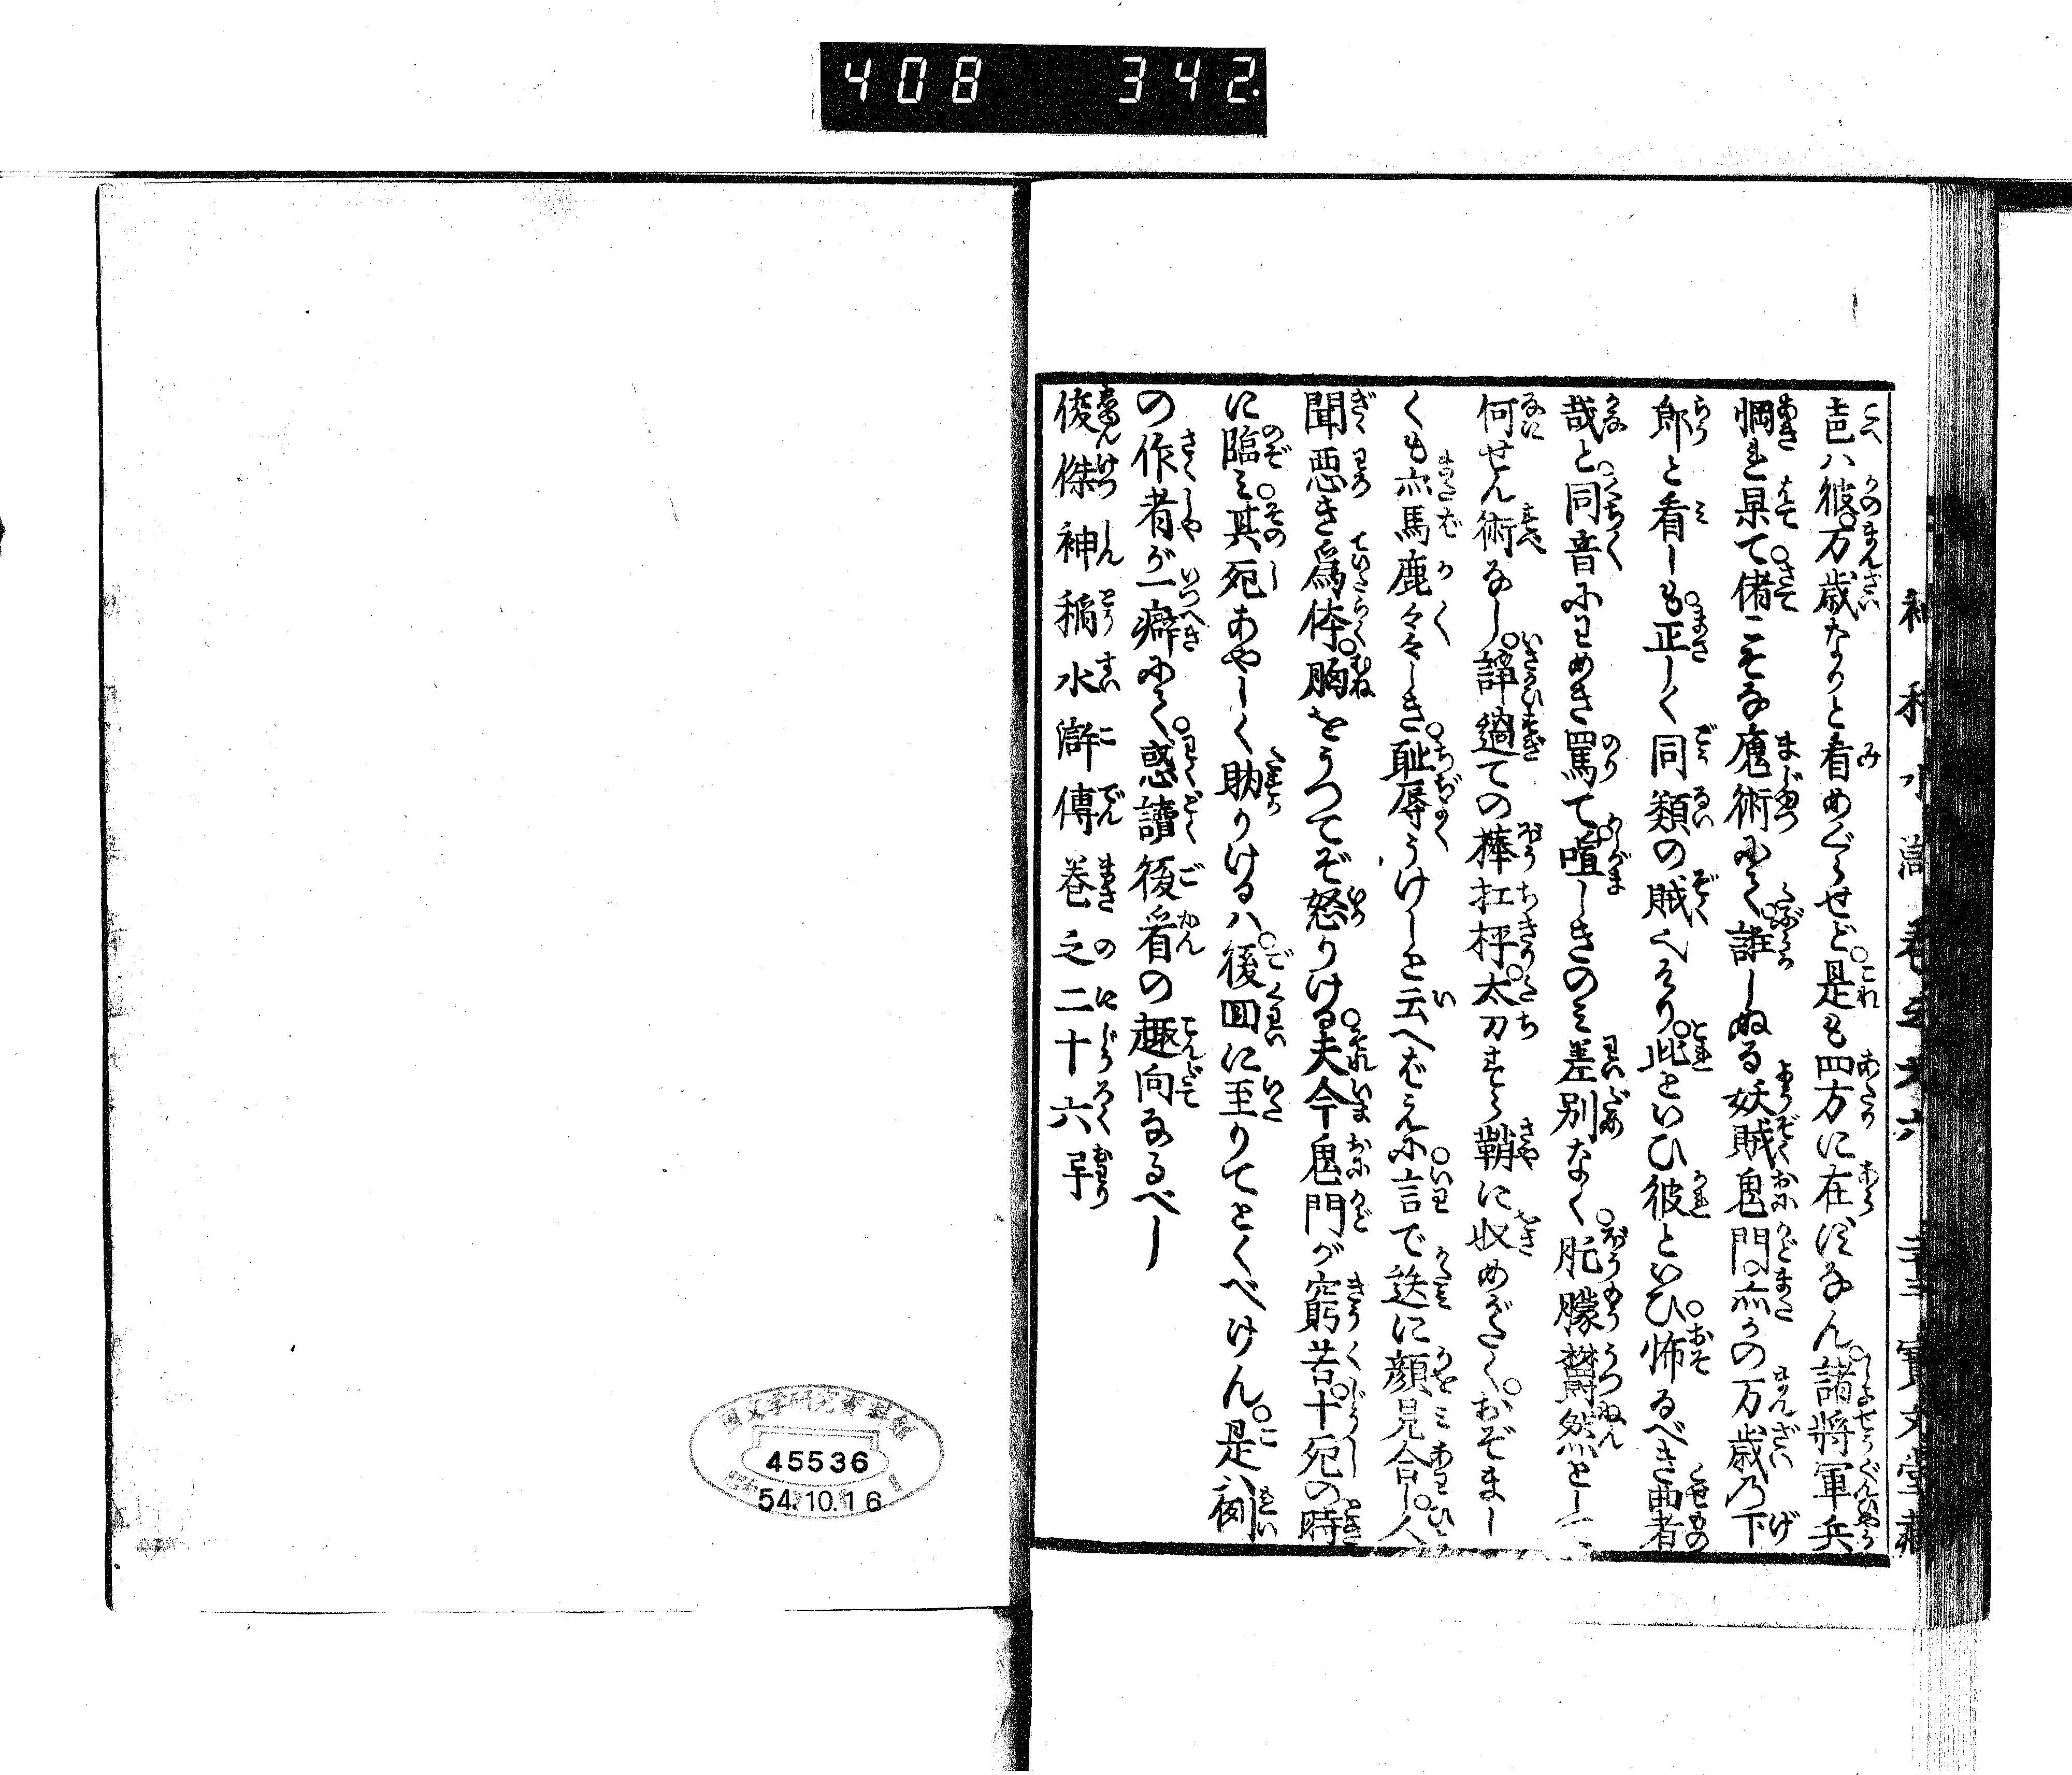 408 342
㐂ハ彼万歳なりと看めぐらせど。是も四方に在ずなん。諸將軍兵
惘れ果て。偖こそな魔術にて。誑しぬる妖賊鬼門。亦かの万歳乃下
郎と看しも。正しく同類の賊へそり。此といひ彼といひ。怖るべき曲者
哉と。同音にわめき罵て。喧しきのミ差別なく。朦朧欝然として
何せん術なし。諍過ての棒杠枰。太刀すら鞘に収めがたく。おぞまし
くも亦馬鹿々々しき。耻辱うけしと云へばえに。言で迭に顔見合し。人
聞悪き為体。胸をうつてぞ怒りける。夫今鬼門が窮苦。十死の時
に臨ミ。其死あやしく助りけるハ。後回に至りてとくべけん。是ハ例
の作者が一癖にて。惑讀後看の趣向なるべし
俊傑神稲水滸傳巻之二十六尾
国文学研究資料館
45536
54.10.16